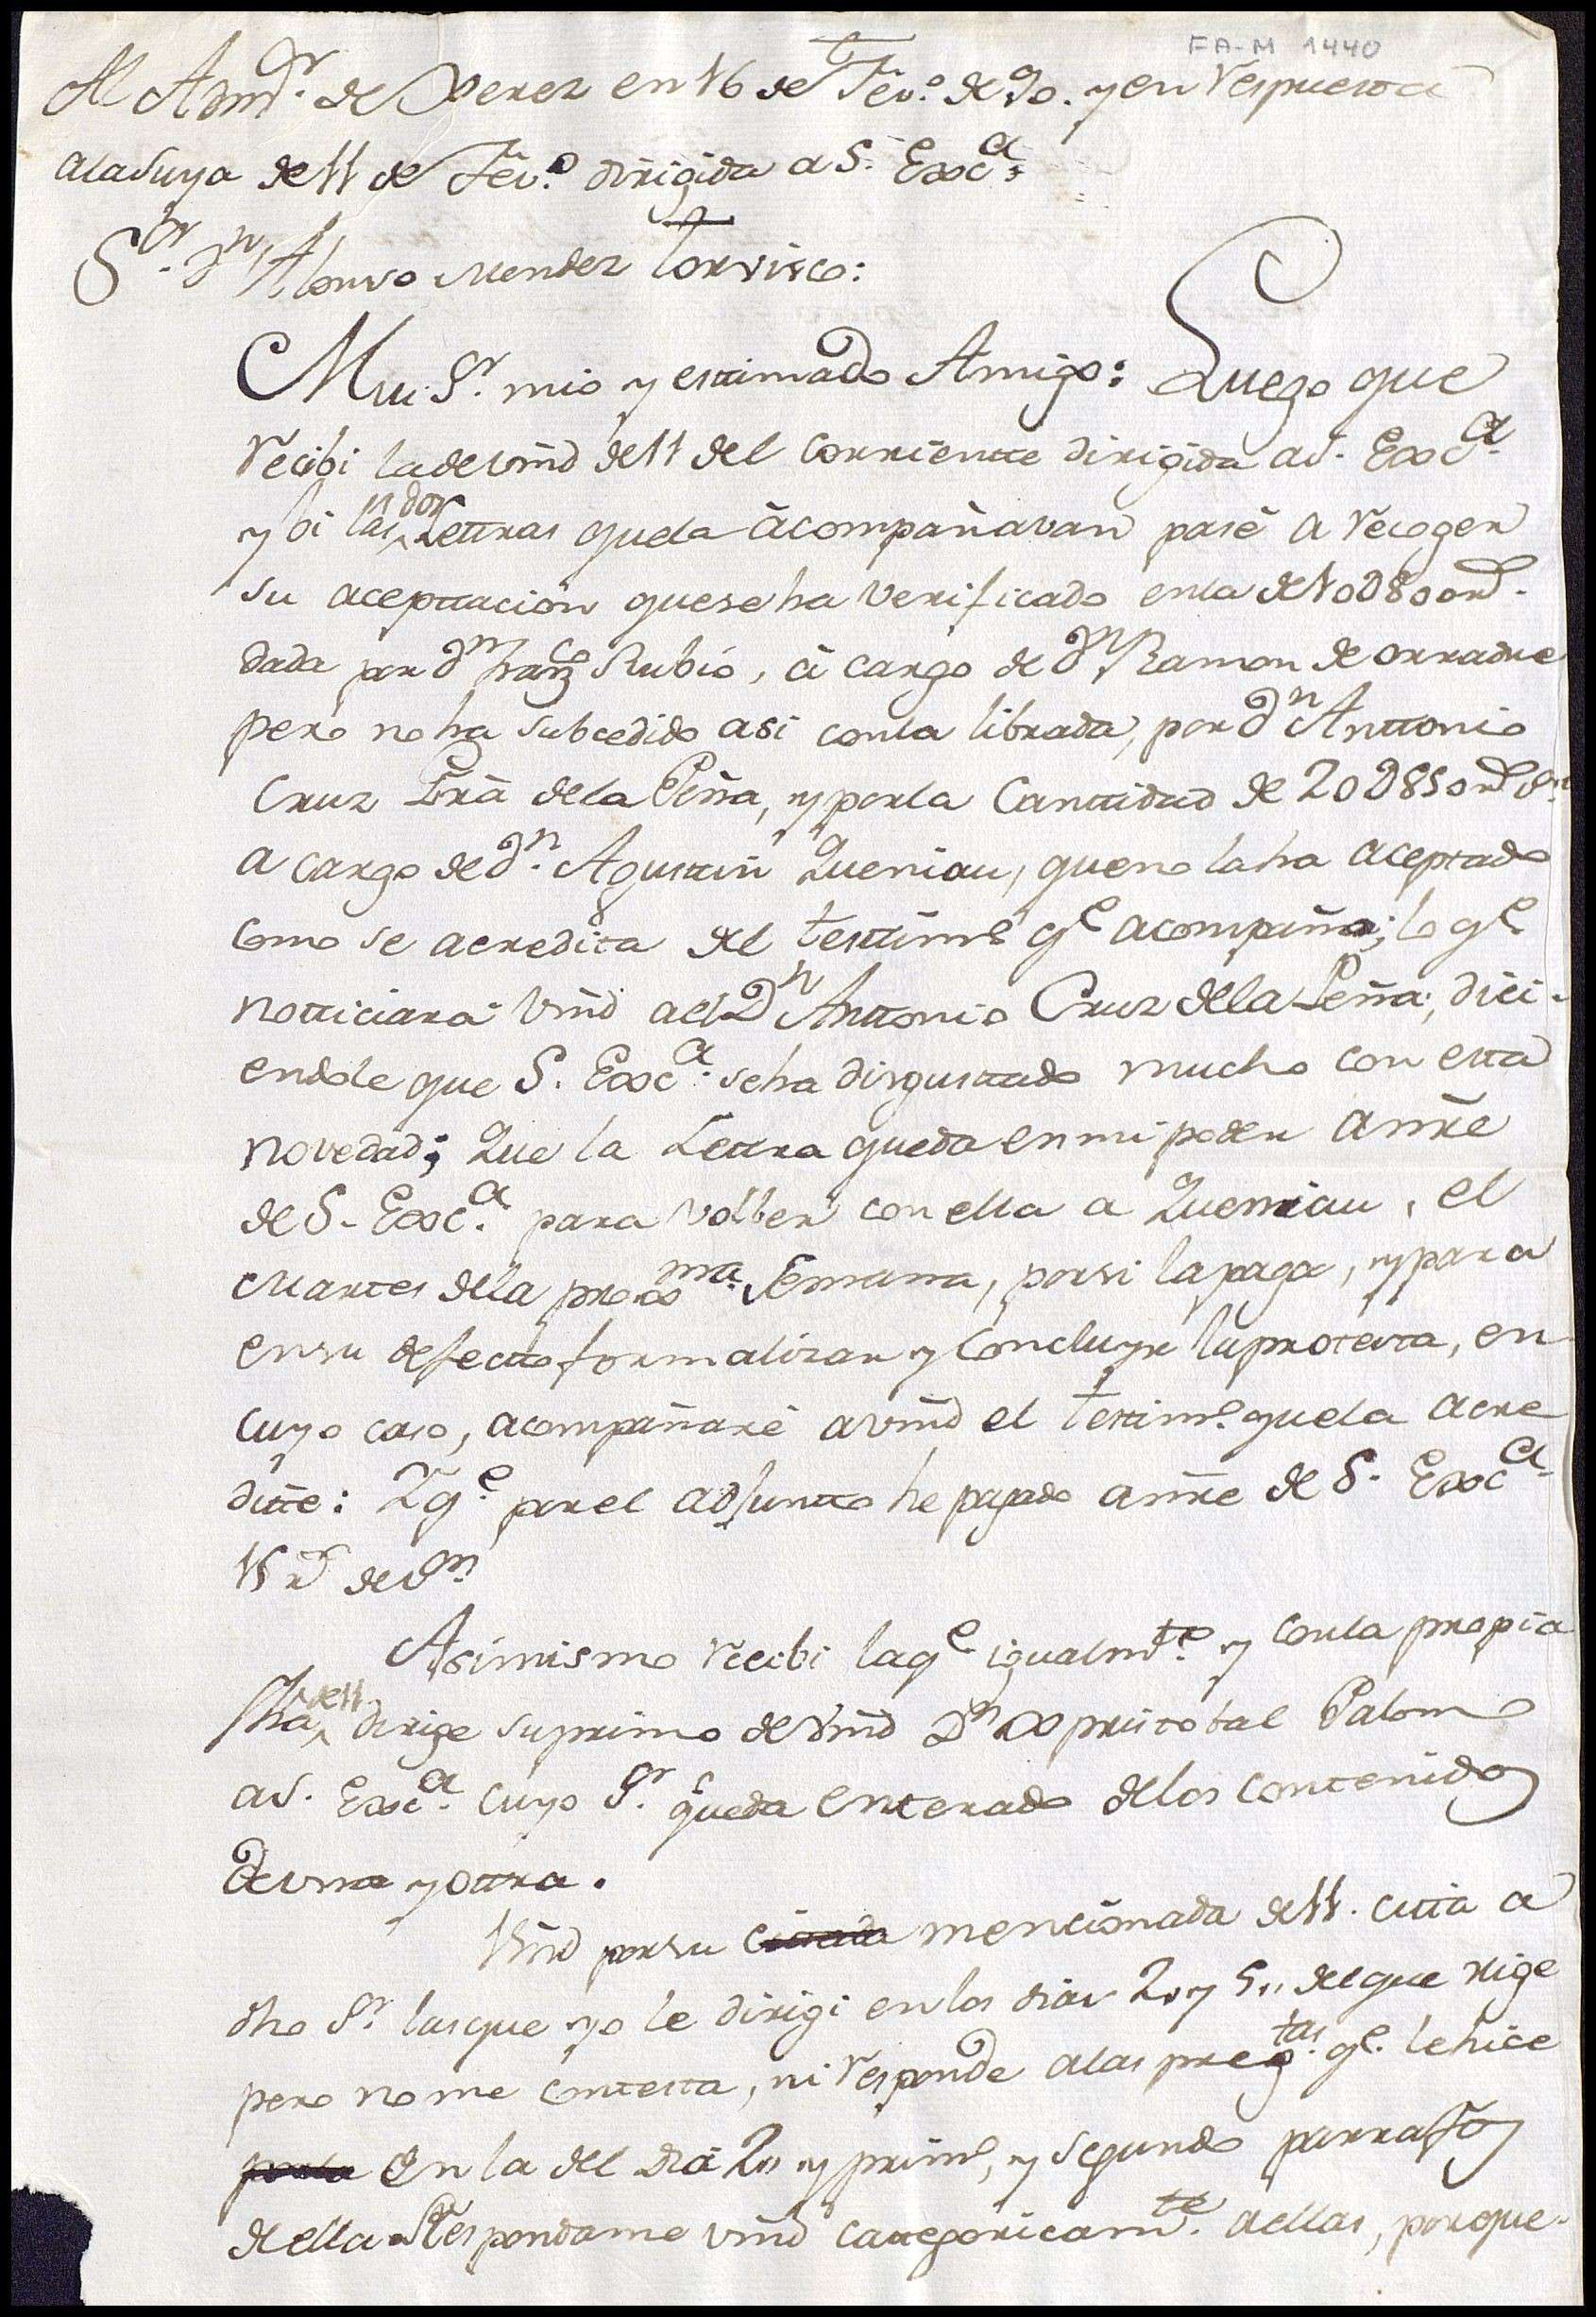 FA-M 1440
Al Admōr. de Xerez en 16 de Fev.o de 90. y en respuesta
ala suya de 11 de Fev.o dirigida a S. Exc.a
S.or D.n Alonso Mendez Torvisco:
Mui S.r mio y esttimado Amigo: Luego que
recibi la de Vmd de 11 del corrientte dirigida a S. Exc.a
y bi las dos Lettras que la ácompañavan pasé a recoger
su acepttación que se ha verificado en la de 10∂800 rs.
dada por D.n Franco Rubio, á cargo de D.n Ramon de orradre
pero no ha subcedido asi con la librada, por D.n Anttonio
Cruz Grã dela Peña, y por la Canttidad de 20∂850 rs vn
a cargo de D.n Agusttin Queniau, que no la ha aceptado
como se acredita del testtim.o q.e acompaño; lo q.e
notticiará Vmd a el D.n Anttonio Cruz dela Peña, dici-
endole que S. Exc.a se ha disgusttado mucho con etta
novedad; Que la Lettra queda en mi poder ānre
de S. Exc.a para volber con ella a Queniau, el
Martes dela prox.ma Semana, por si la paga, y para
en su defectto formalizar y Concluyr la protesta, en
cuyo caso, acompañaré a Vmd el testtim.o que la acre
ditte: Y q.e por el adjuntto he pagado ānre de S. Exc.a
15 rs de vn.
Asimismo recibi la q.e igualm.te y con la propia
fhã de 11 dirige su primo de Vmd D.n Xpristobal Palomo
a S. Exc.a cuyo S.r queda entterado delos contenidos
de una y ottra.
Vmd por su citada mencionada de 11. citta a
dho S.r las que yo le dirigi en los dias 2,, y 5,, del que rige
pero no me conttesta, ni responde a las preg.tas q.e le hice
por la En la del dia 2,, y prim.o, y segundo parrafos
de ella Respondame Vmd cattegoricam.te a ellas, porque.